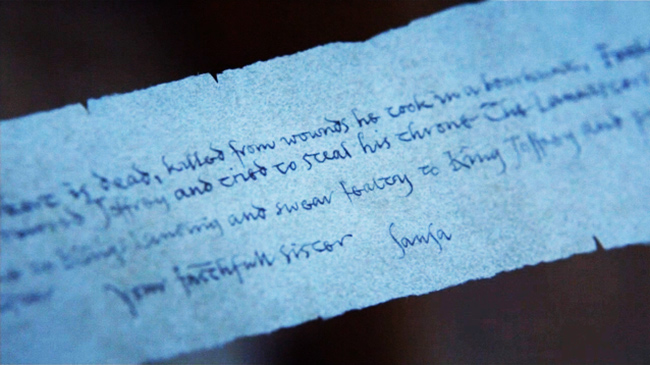 is dead, killed from wounds he took in a boarhunt.
Joffroy and tried to steal his throne The
to Kings Landing and swear fealty to King Joffroy and
Your faithfull sister Sansa